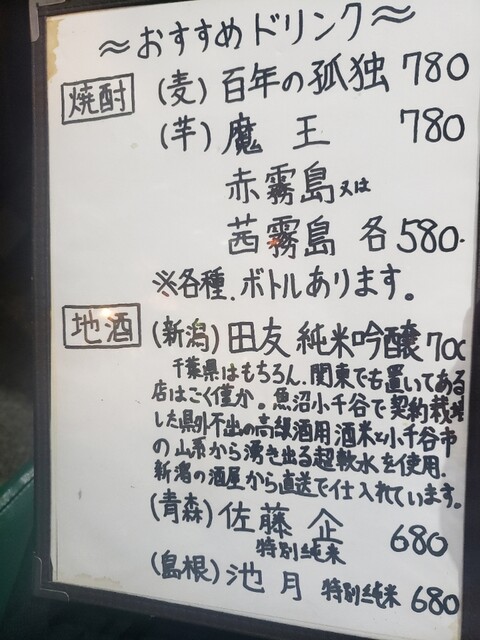 ≈おすすめドリンク≈
焼酎 (麦) 百年の孤独 780
(芋) 魔王 780
赤霧島又は
茜霧島 各580.
※各種.ボトルあります。
地酒 (新潟) 田友 純米吟醸 700
千葉県はもちん.関東でも置いてある
店はごく僅か。魚沼小千谷で契約栽培
した県外不出の高級酒用酒米と小千谷市
の山系から湧き出る超軟水を使用.
新潟の酒屋から直送で仕入れています。
(青森) 佐藤企 680
特別純米
(島根) 池月 特別純米 680